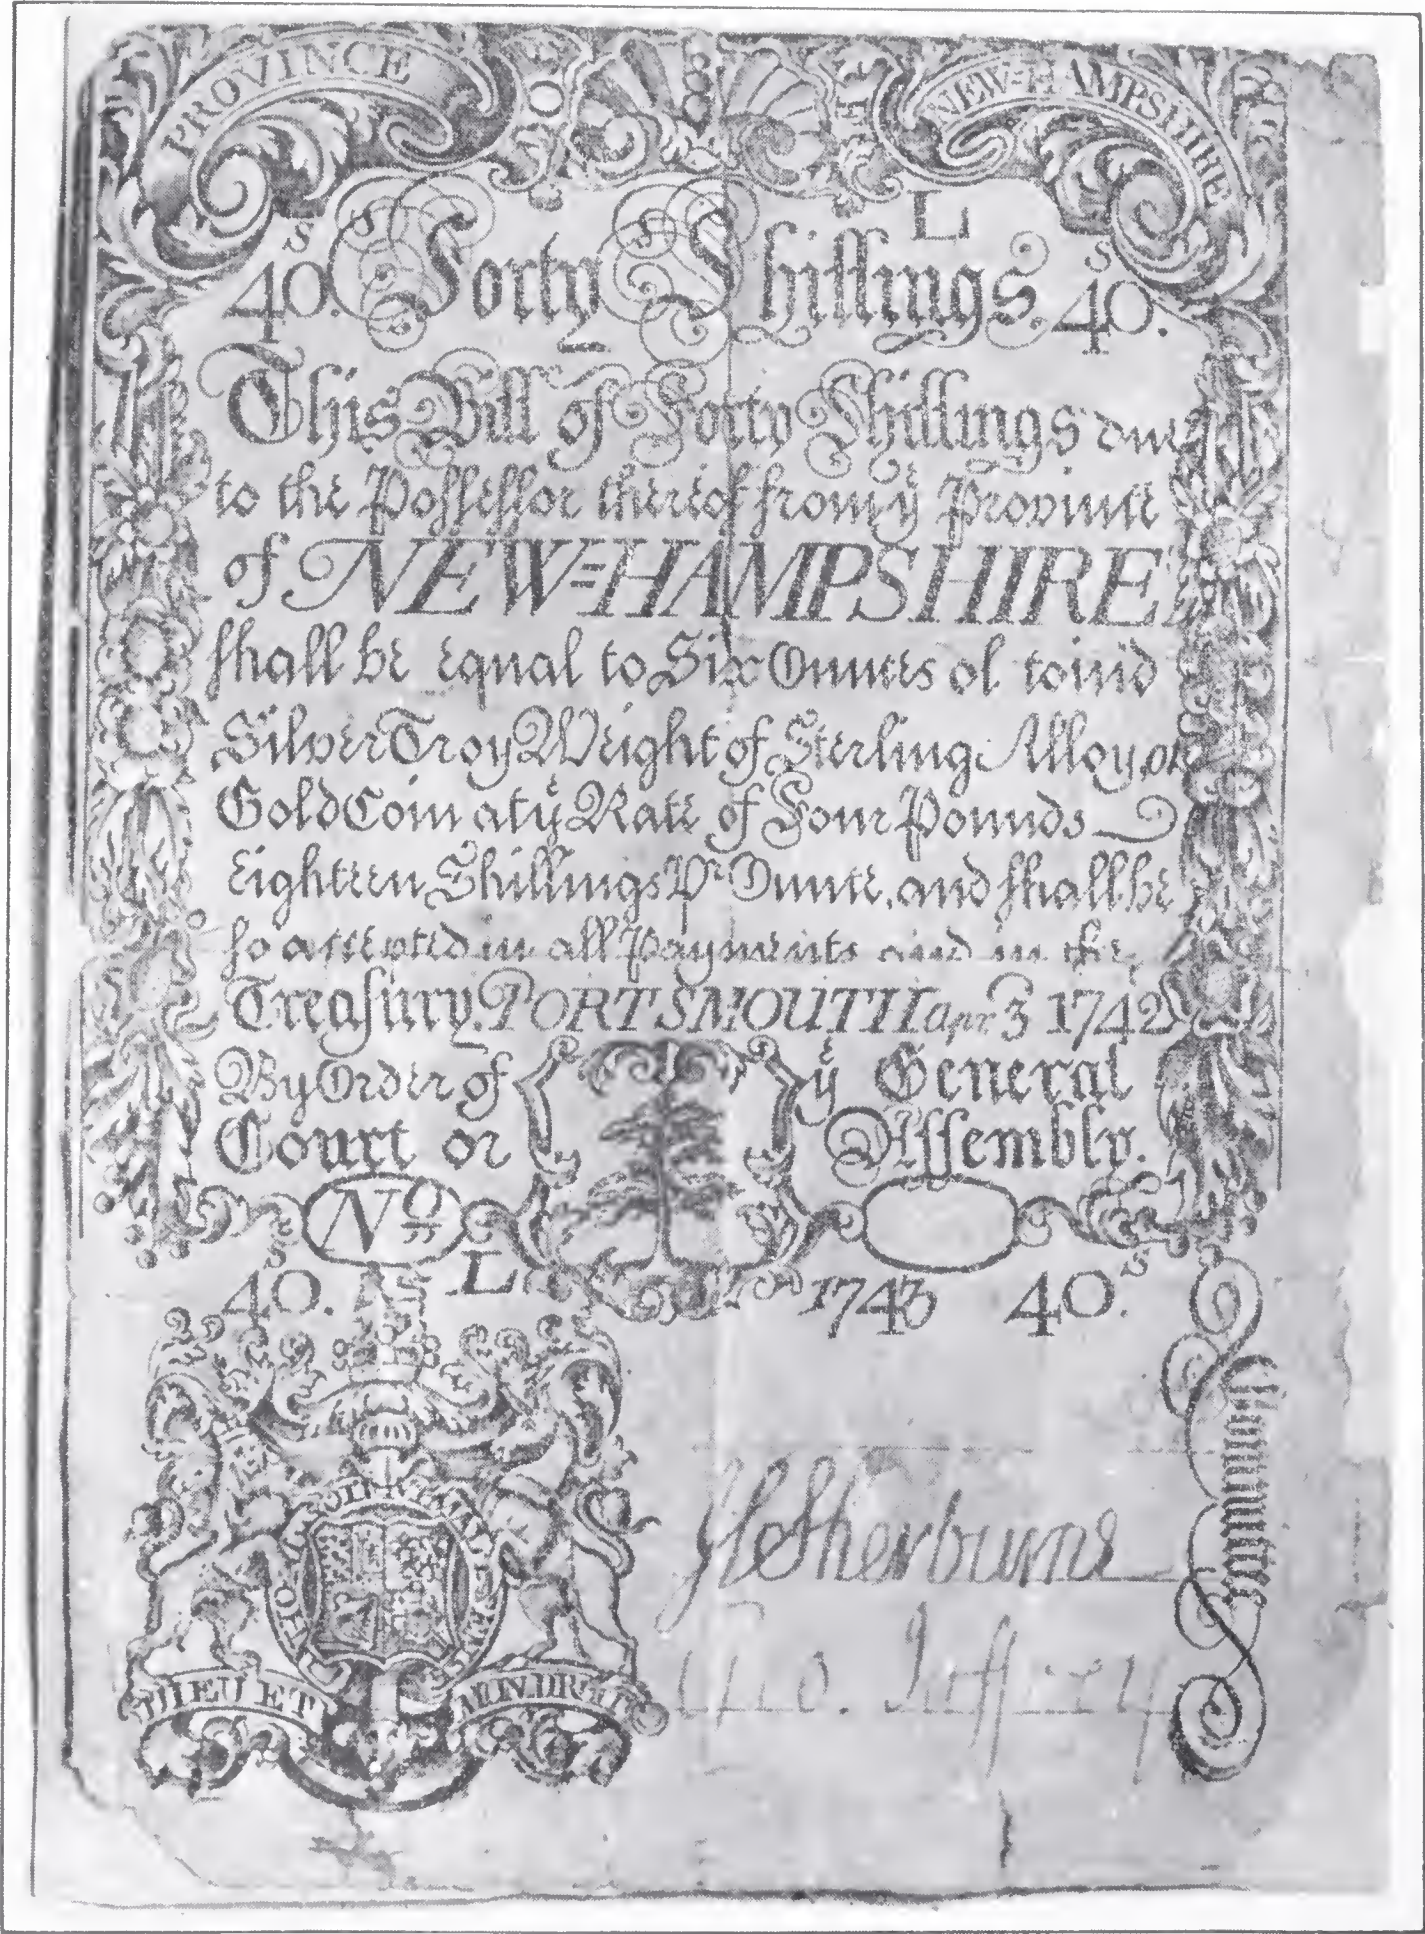 PROVINCE
NEW=HAMPSHIRE
L
40.s Forty Shillings 40.s
This Bill of Forty Shillings due
to the Possessor thereof from yͤ Province
of NEW=HAMPSHIRE
shall be equal to Six Ounces of coin'd
Silver Troy Weight of Sterling Alloy, or
Gold Coin at yͤ Rate of Four Pounds
eighteen Shillings Pr Ounce, and shall be
so accepted in all Payments and in the
Treasury. PORTSMOUTH apr 3 1742
By Order of yͤ General
Court or Assembly.
No
40.s L 1743 40.s
HONI SOIT
DIEU ET MON DROIT
H Sherburne
Geo. Jaffrey